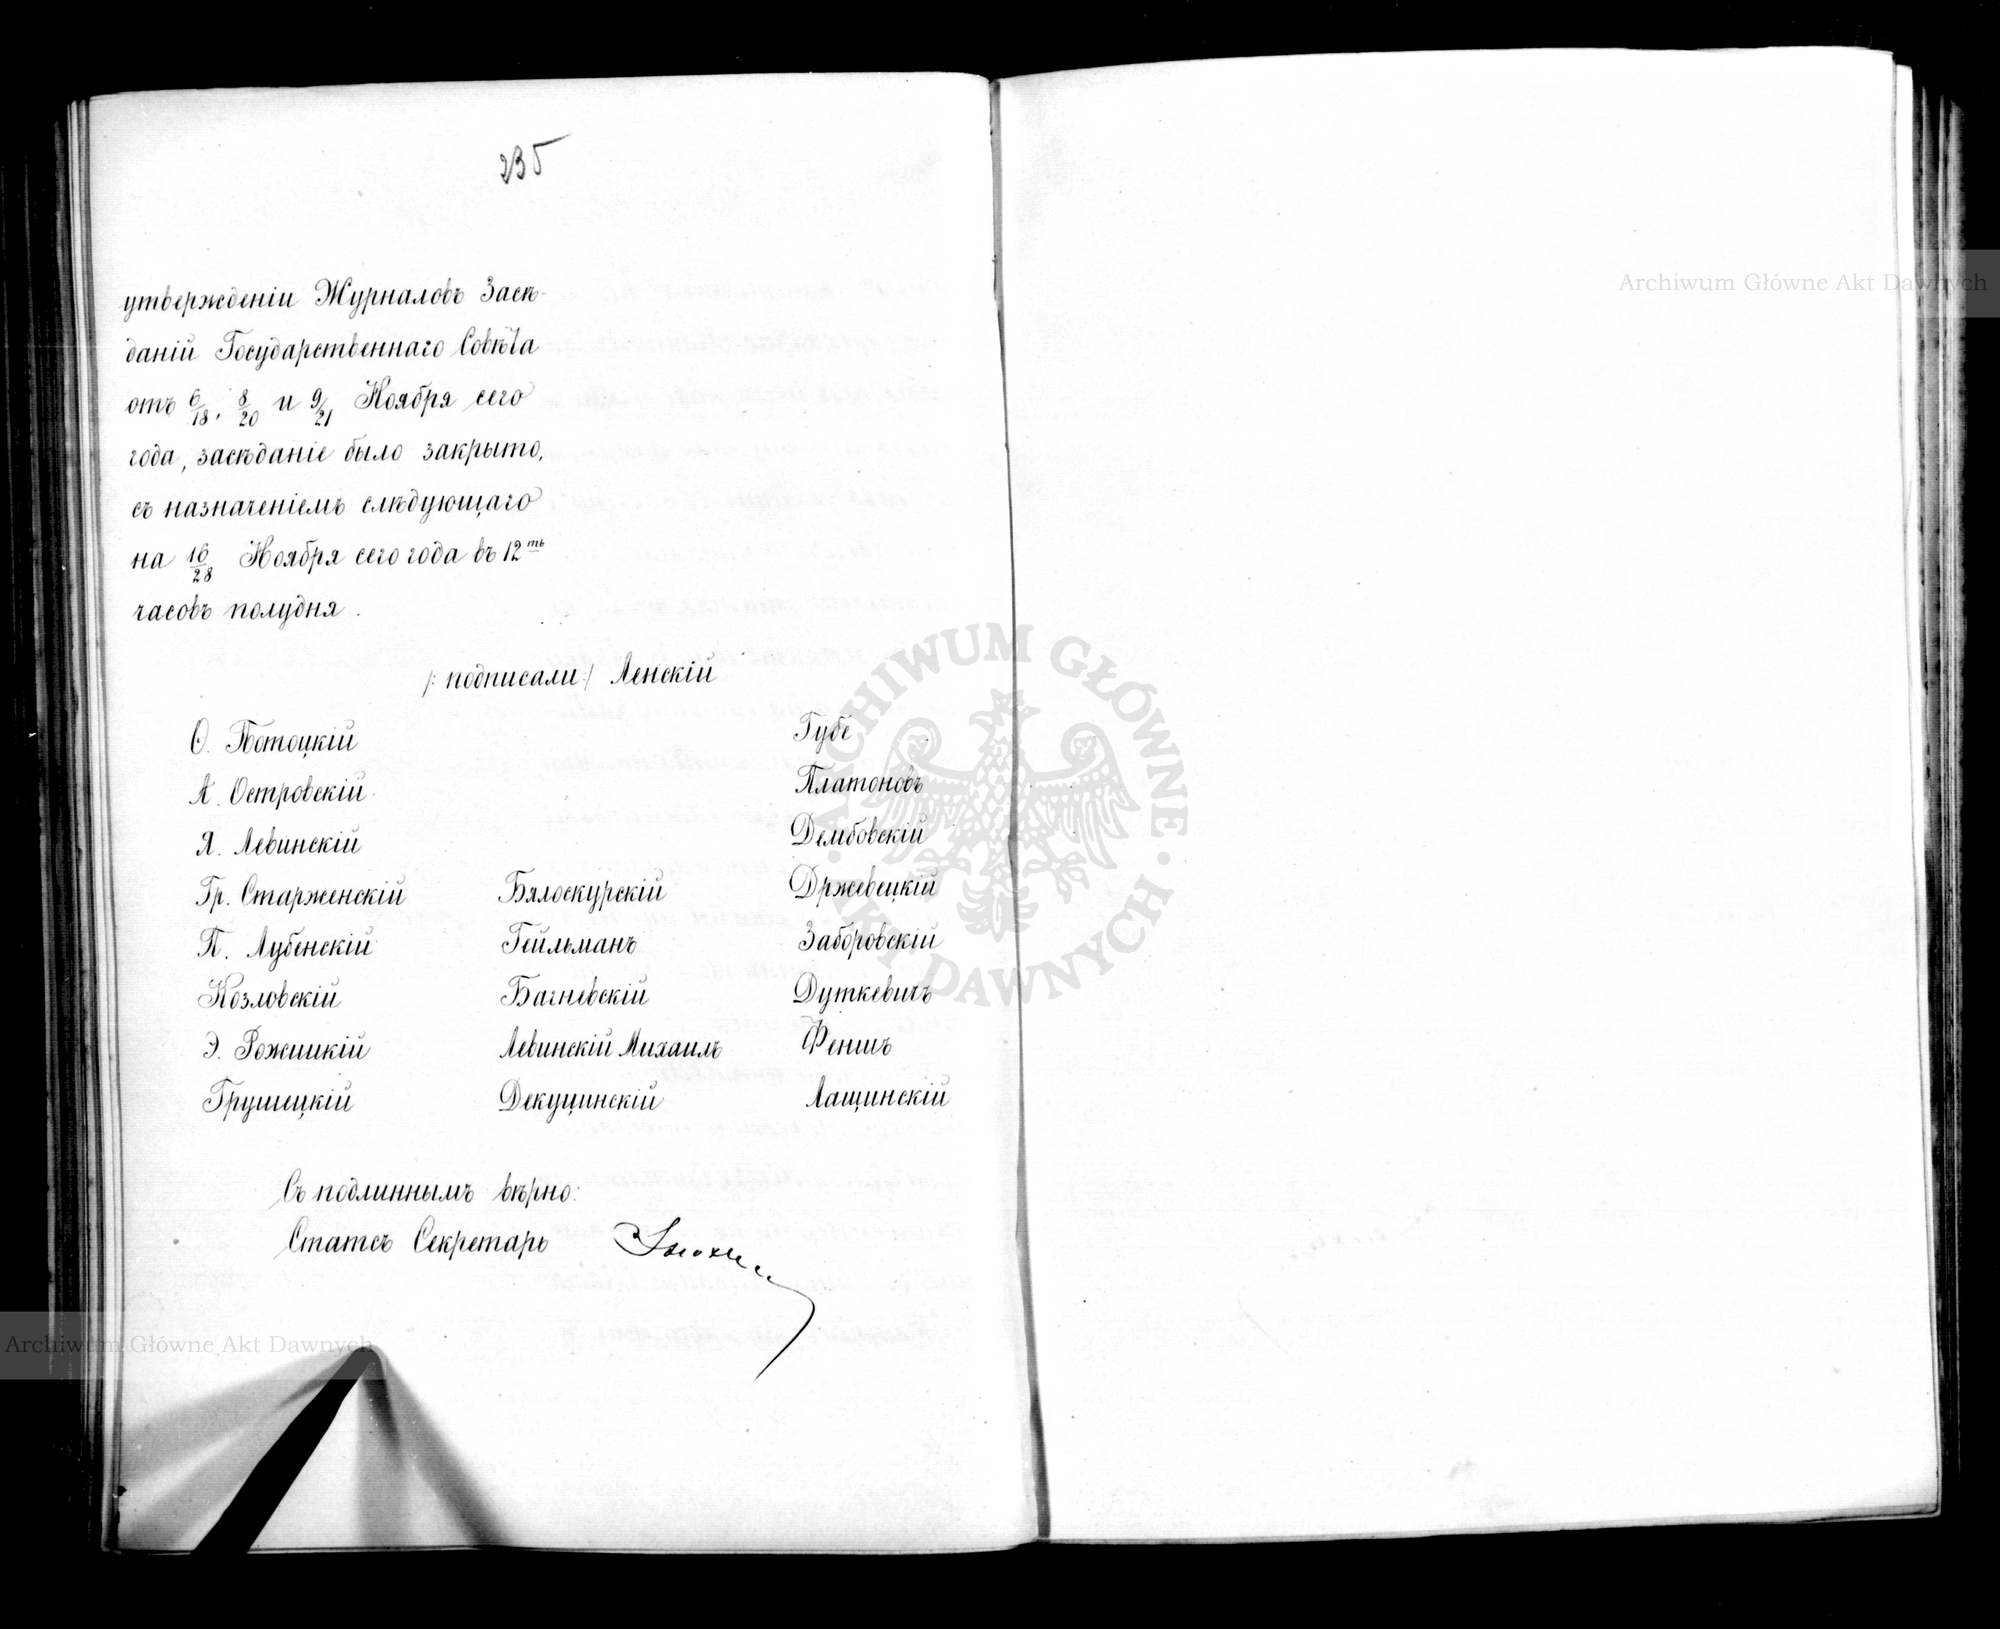 235
утвержденіи Журналовъ Засѣ-
даній Государственнаго Совѣта
отъ 6/18, 8/20 и 9/21 Ноября сего
года, засѣданіе было закрыто,
съ назначеніемъ слѣдующаго
на 16/28 Ноября сего года въ 12ть
часовъ полудня.
/:подписали:/ Ленскій
Ѳ. Потоцкій Губе
А. Островскій Платоновъ
Я. Левинскій Дембовскій
Гр. Старженскій Бялоскурскій Држевецкій
П. Лубенскій Гейльманъ Заборовскій
Козловскій Багневскій Дуткевичъ
Э. Рожницкій Левинскій Михаилъ Феншъ
Грушецкій Декуцинскій Лащинскій
Съ подлиннымъ вѣрно:
Статсъ Секретарь
Archiwum Główne Akt Dawnych
Archiwum Główne Akt Dawnych
ARCHIWUM GŁÓWNE · AKT DAWNYCH ·